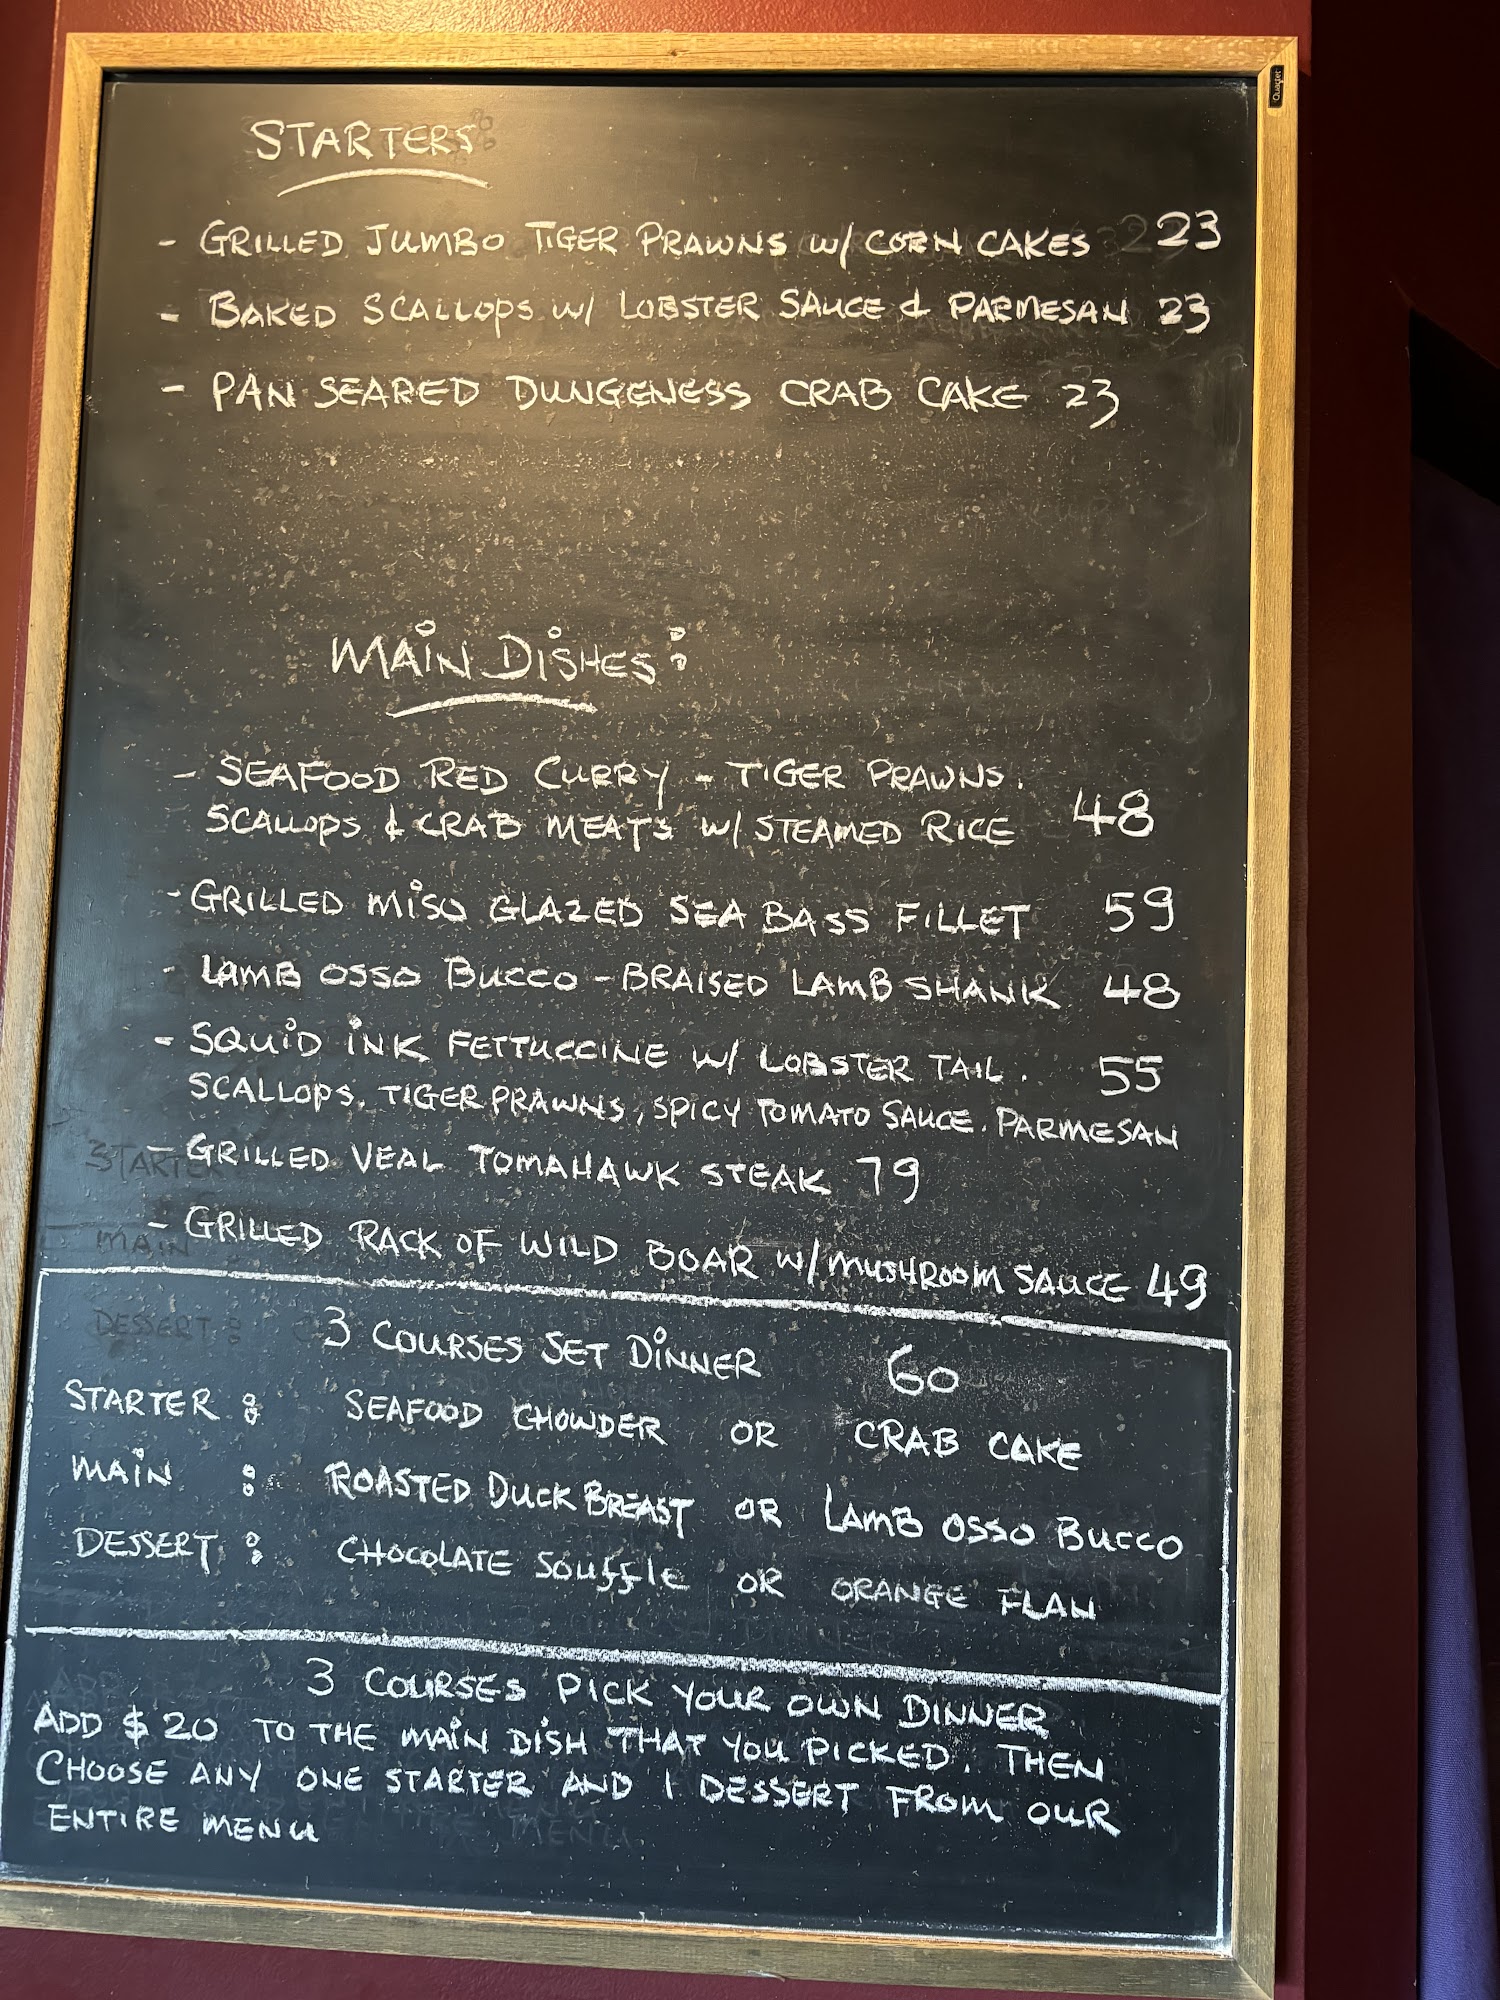 Quartet
STARTERS
- GRILLED JUMBO TIGER PRAWNS W/ CORN CAKES 23
- BAKED SCALLOPS W/ LOBSTER SAUCE & PARMESAN 23
- PAN SEARED DUNGENESS CRAB CAKE 23
MAIN DISHES:
- SEAFOOD RED CURRY - TIGER PRAWNS.
SCALLOPS & CRAB MEATS W/ STEAMED RICE 48
- GRILLED MISO GLAZED SEA BASS FILLET 59
- LAMB OSSO BUCCO - BRAISED LAMB SHANK 48
- SQUID INK FETTUCCINE W/ LOBSTER TAIL. 55
SCALLOPS. TIGER PRAWNS, SPICY TOMATO SAUCE. PARMESAN
- GRILLED VEAL TOMAHAWK STEAK 79
- GRILLED RACK OF WILD BOAR W/ MUSHROOM SAUCE 49
3 COURSES SET DINNER 60
STARTER: SEAFOOD CHOWDER OR CRAB CAKE
MAIN : ROASTED DUCK BREAST OR LAMB OSSO BUCCO
DESSERT: CHOCOLATE SOUFFLE OR ORANGE FLAN
3 COURSES PICK YOUR OWN DINNER
ADD $20 TO THE MAIN DISH THAT YOU PICKED. THEN
CHOOSE ANY ONE STARTER AND 1 DESSERT FROM OUR
ENTIRE MENU